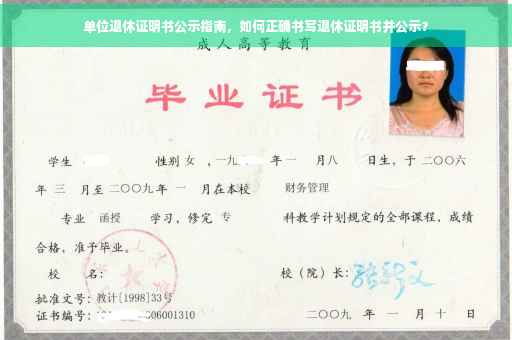 单位退休证明书公示指南，如何正确书写退休证明书并公示？
成人高等教育
毕业证书
学生 性别 女 ，一九 年 一 月八 日生，于 二〇〇六
年 三 月至 二〇〇九 年 一 月在本校 财务管理
专业 函授 学习，修完 专 科教学计划规定的全部课程，成绩
合格，准予毕业。
校 名： 校（院）长：
批准文号：教计[1998]33号
证书编号： 06001310 二〇〇九 年 一 月 十 日